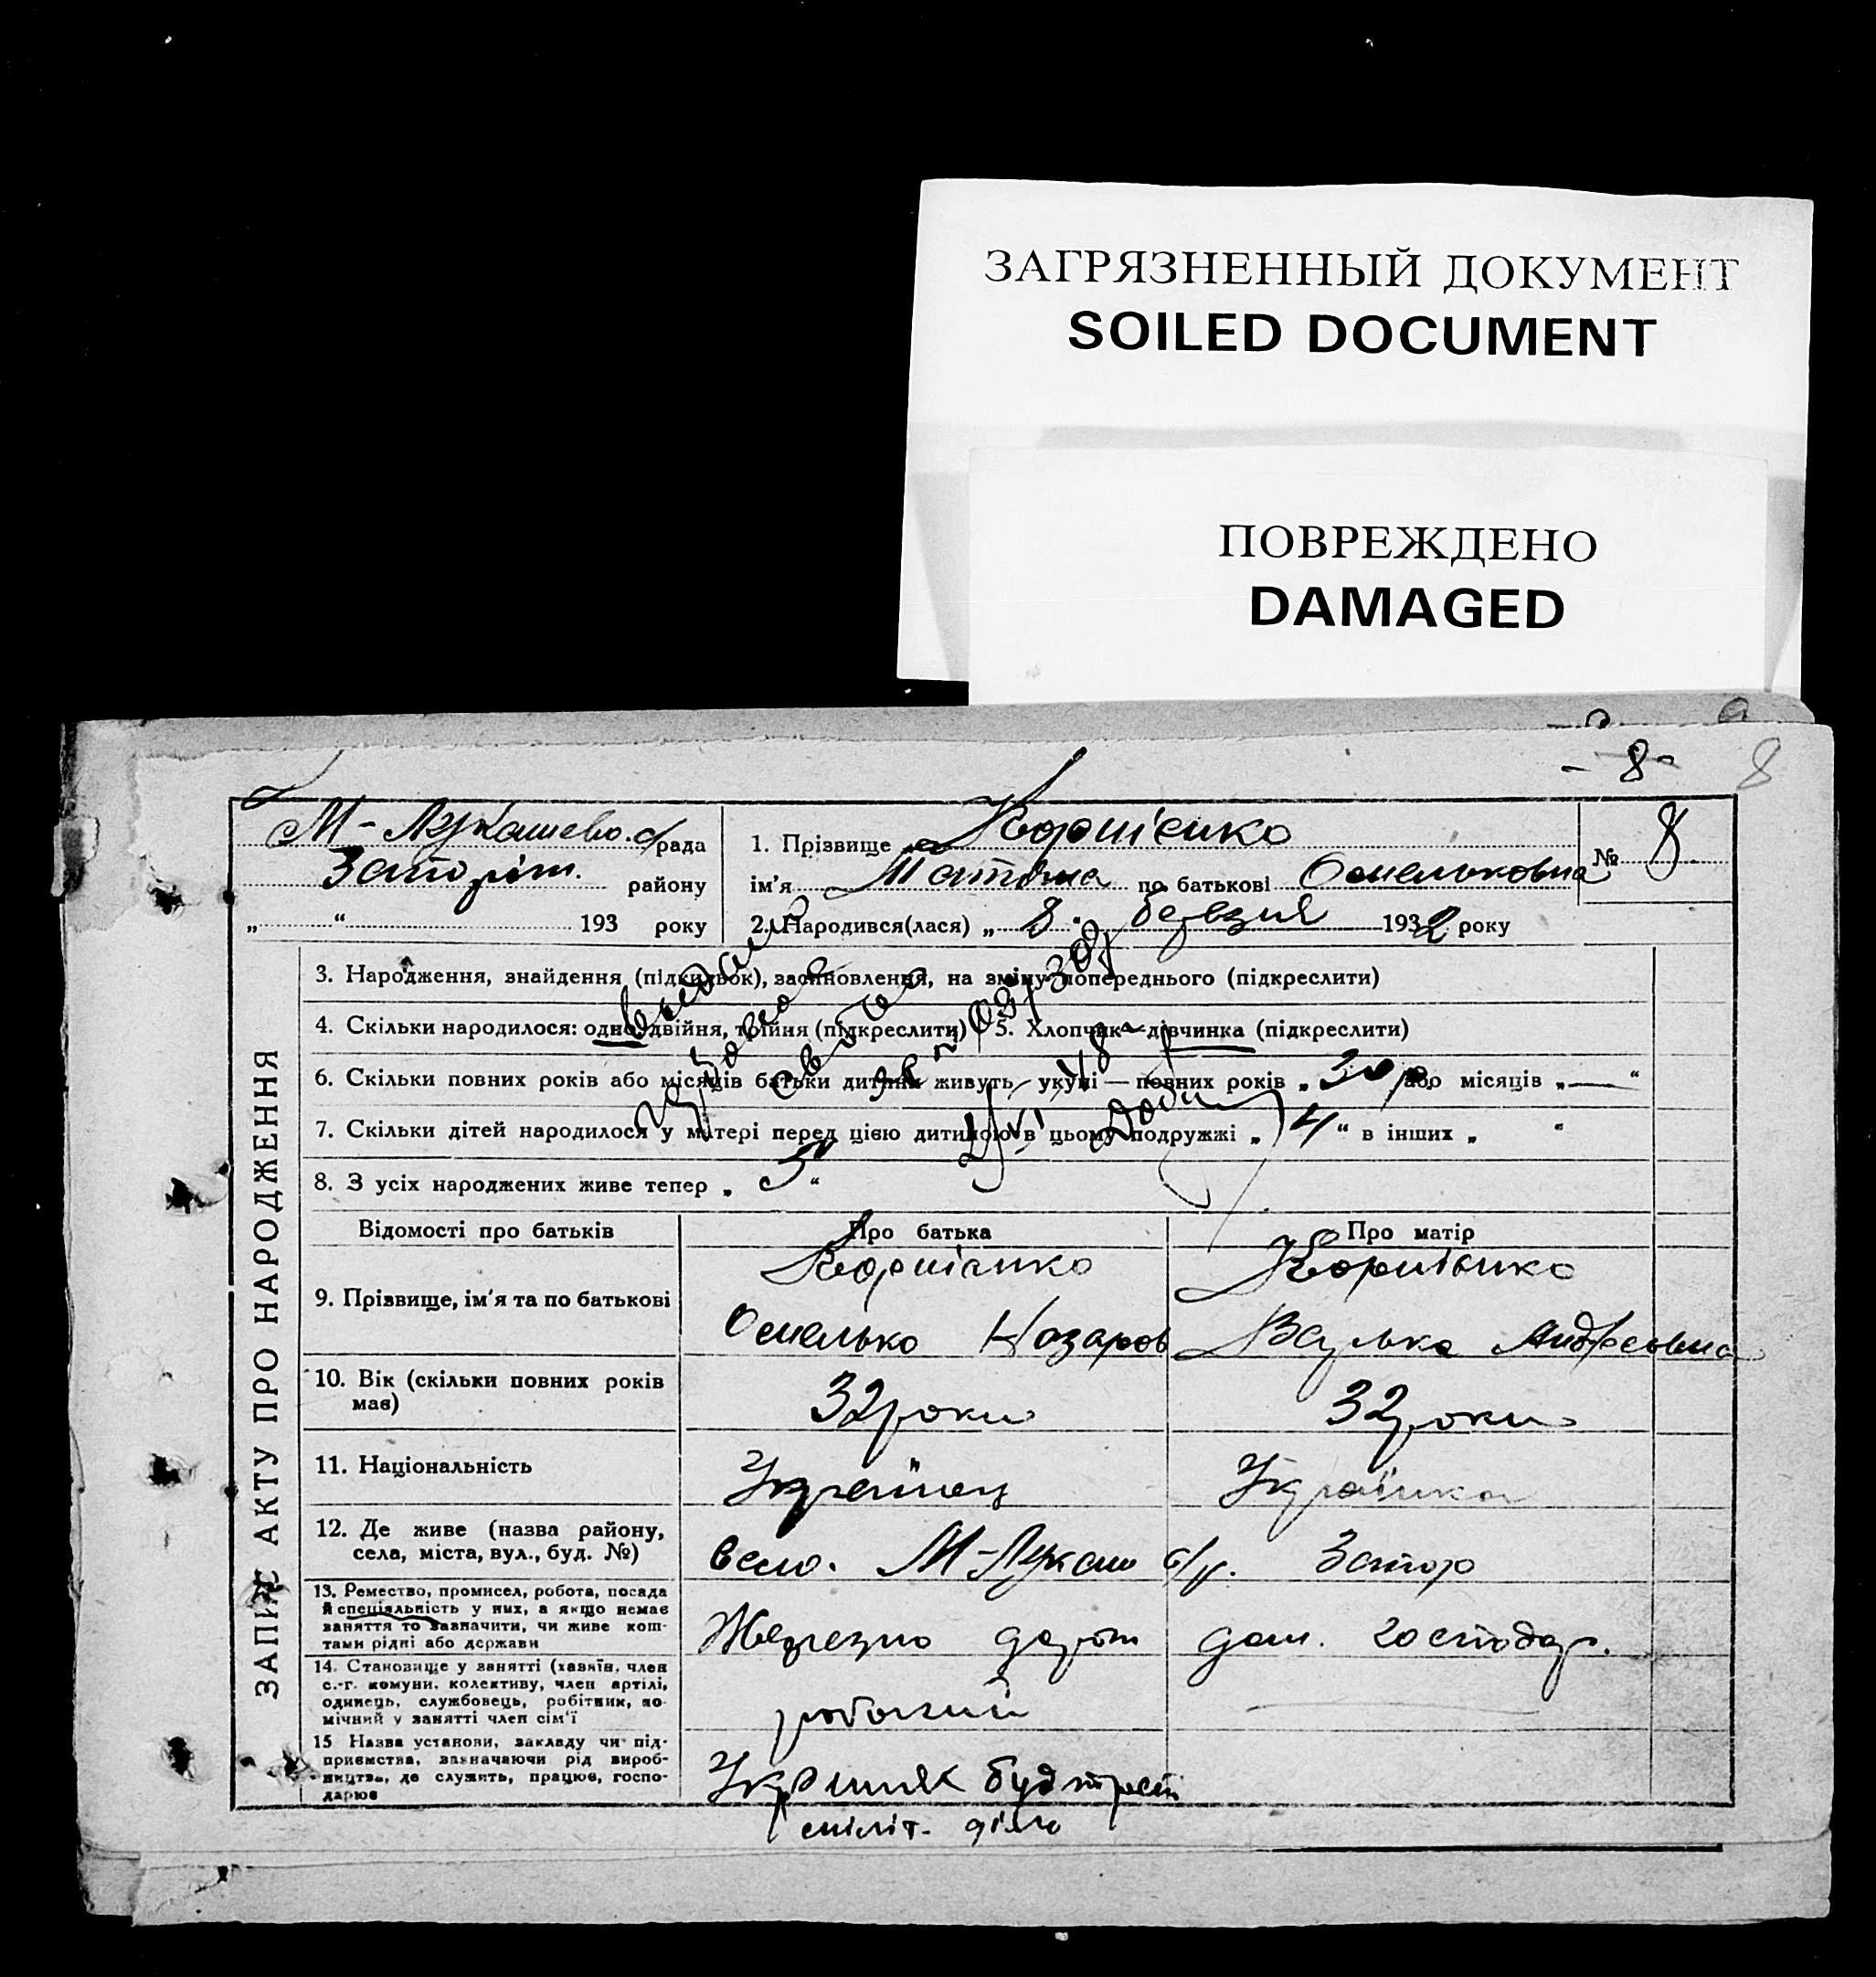 ЗАГРЯЗНЕННЫЙ ДОКУМЕНТ
SOILED DOCUMENT
ПОВРЕЖДЕНО
DAMAGED
- 8 - 8
М-Лукашево. с/рада
Запоріж. району
„ “ 193 року
1. Прізвище Корнієнко
ім'я по батькові Омельковна
№ 8
2. Народився(лася) „ 8 “ березня 1932 року
ЗАПИС АКТУ ПРО НАРОДЖЕННЯ
3. Народження, знайдення (підкидьок), засиновлення, на зміну попереднього (підкреслити)
4. Скільки народилося: одно, двійня, трійня (підкреслити) 5. Хлопчик—дівчинка (підкреслити)
6. Скільки повних років або місяців батьки дитини живуть укупі — повних років „ або місяців „ — “
7. Скільки дітей народилося у матері перед цією дитиною в цьому подружжі „ 4 “ в інших „ “
8. З усіх народжених живе тепер „ 3 “
Відомості про батьків Про батька Про матір
9. Прізвище, ім'я та по батькові
Корнієнко Корнієнко
Омелько Назаров Андреевна
10. Вік (скільки повних років має)
32 роки 32 роки
11. Національність
Українец Українка
12. Де живе (назва району, села, міста, вул., буд. №)
М-Лукаш с/р. Запор
13. Ремество, промисел, робота, посада й спеціяльність у них, а якщо немає заняття то зазначити, чи живе коштами рідні або держави
дом. господар.
14. Становище у занятті (хазяїн, член с.-г. комуни, колективу, член артілі, одинець, службовець, робітник, помічний у занятті член сім'ї
робочий
15 Назва установи, закладу чи підприємства, зазначаючи рід виробництва, де служить, працює, господарює
будтрест